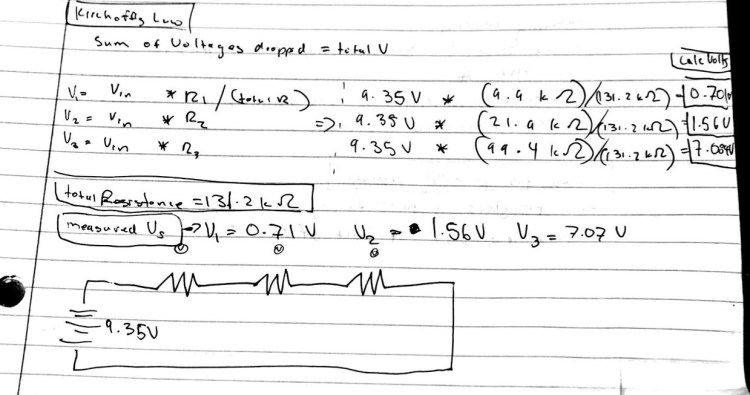 Kirchoffs Law
Sum of Voltages dropped = total V
Calc Volts
V₁ = Vin * R₁ / (total R) 9.35V * (9.9 kΩ)/(131.2kΩ) =
V₂ = Vin * R₂ => 9.35V * (21.9 kΩ)/(131.2kΩ) = 1.56V
V₃ = Vin * R₃ 9.35V * (99.4 kΩ)/(131.2kΩ) =
total Resistance = 131.2kΩ
measured Vs → V₁ = 0.71V V₂ = 1.56V V₃ = 7.07V
9.35V